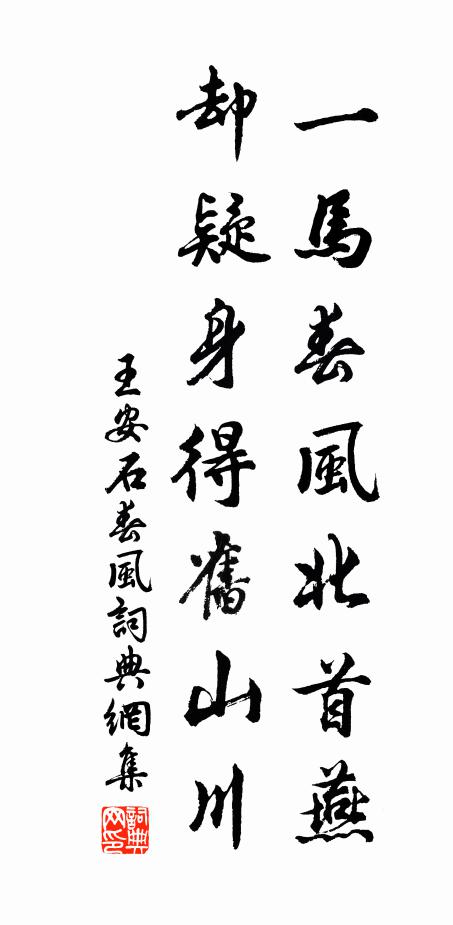 一馬春風北首燕
却疑身得舊山川
王安石春風詞典網集
詞典
网印